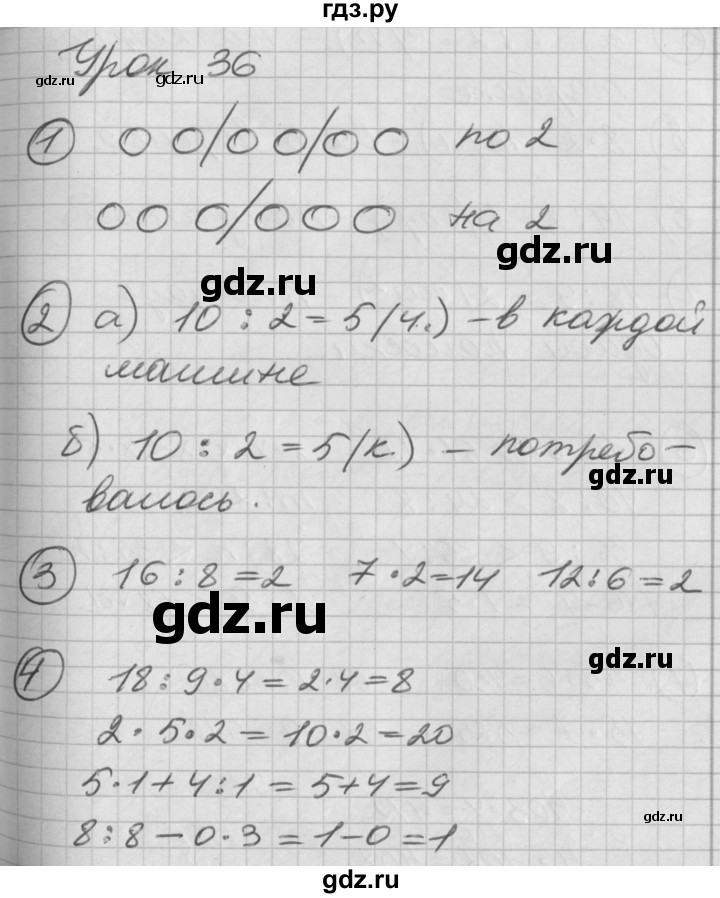 гдз.ру
Урок 36
gdz.ru
gdz.ru
1 по 2
на 2
gdz.ru
gdz.ru
2 а) 10 : 2 = 5 (ч.) – в каждой
машине
б) 10 : 2 = 5 (к.) – потребо-
gdz.ru
валось.
3 16 : 8 = 2 7 · 2 = 14 12 : 6 = 2
gdz.ru
4 18 : 9 · 4 = 2 · 4 = 8
2 · 5 · 2 = 10 · 2 = 20
5 · 1 + 4 : 1 = 5 + 4 = 9
gdz.ru
8 : 8 – 0 · 3 = 1 – 0 = 1
gdz.ru